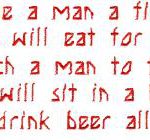 e a man a fi
will eat for
ch a man to f
will sit in a
drink beer all